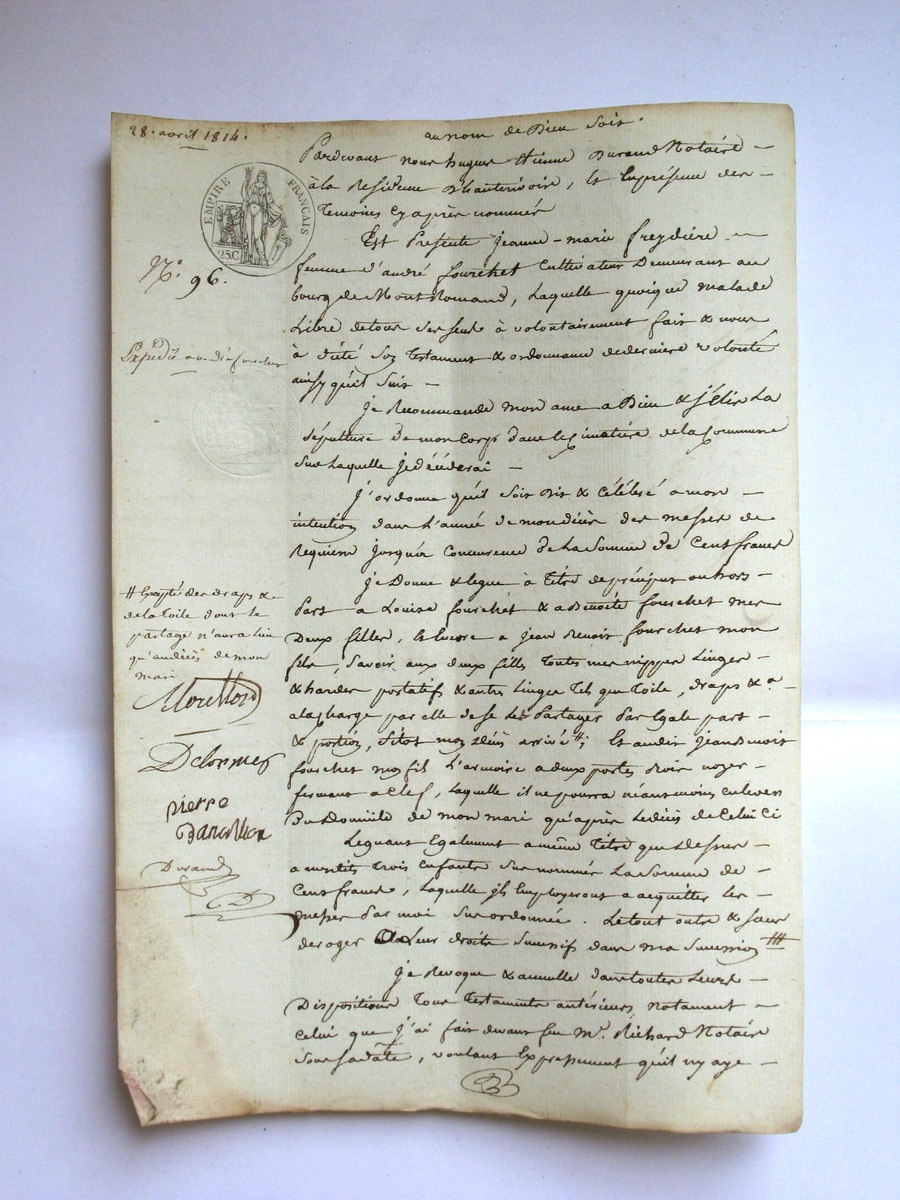 28. avril 1814.
au nom de Dieu soit.
EMPIRE FRANÇAIS
25.C
N.° 96.
Pardevant nous hugues Etienne Durand Notaire -
à la Residence d'hauterivoire, & En présence des -
Temoins cy après nommés
Est Presente Jeanne-marie freydière -
femme d'andré fourchet Cultivateur Demeurant au
bourg de Montromand, Laquelle quoique malade
Libre de tous ses sens à volontairement fait & nous
à dicté son Testament & ordonnance de derniere volonté
ainsy qu'il suit -
Je Recommande mon ame a Dieu & j'élis La
sépulture de mon Corps dans le Cimetière de la Commune
sur Laquelle je décéderai -
J'ordonne qu'il soit dit & célébré a mon -
intention dans L'année de mon décès des messes de
Requiem jusqu'à Concurence de La Somme de Cent francs
Je Donne & legue à Titre de préciput ou hors -
Part a Louise fourchet & a Benoite fourchet mes
Deux filles, & Encore a Jean Benoit fourchet mon
fils, Savoir aux deux filles Toutes mes nippes Linges -
& hardes portatifs & autres Linges Tel que Toile, draps & a -
a la Charge par elle de se les Partager Par Egale part -
& portion, sitot mon décès arrivé #; Et audit Jean Benoit
fourchet mon fils L'armoire a deux portes Bois noyer -
fermant a Clef, Laquelle il ne pourra néansmoins enlever
Du Domicile de mon mari qu'après Le décès de Celui Ci
Leguant Egalement a même Titre que Dessus -
a mesdits Trois Enfants sus nommés La Somme de -
Cent francs, Laquelle ils Employeront a acquitter les -
messes Par moi sus ordonnée. Le tout outre & sans
deroger a Leur droits Successifs dans ma Succession #
Je Revoque & annulle dans toutes Leurs -
Dispositions Tous Testaments antérieurs, notament -
Celui que j'ai fait devant feu M.r Richard Notaire
Sous sa date, voulant Expressement qu'il n'y aye -
Expédié
# Excepté des draps &
de la toile dont le
partage n'aura lieu
qu'au décès de mon
mari
Delormes
pierre
Durand
D